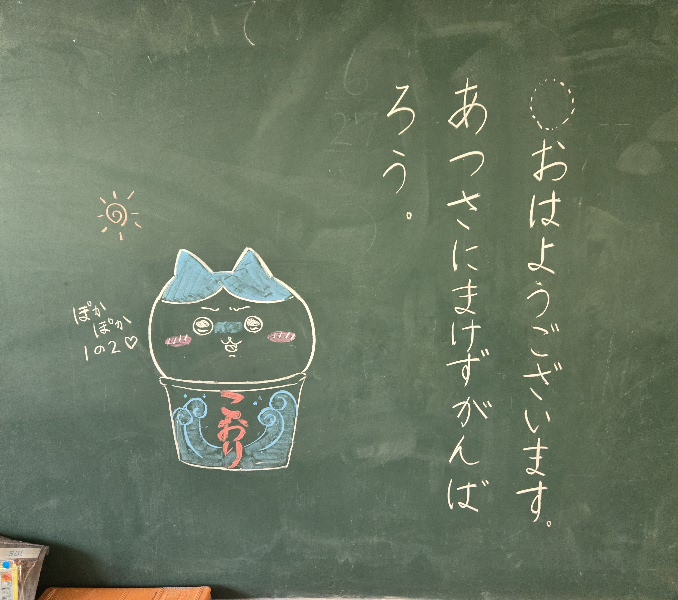 おはようございます。
あつさにまけずがんば
ろう。
ぽか
ぽか
1の2♡
こおり